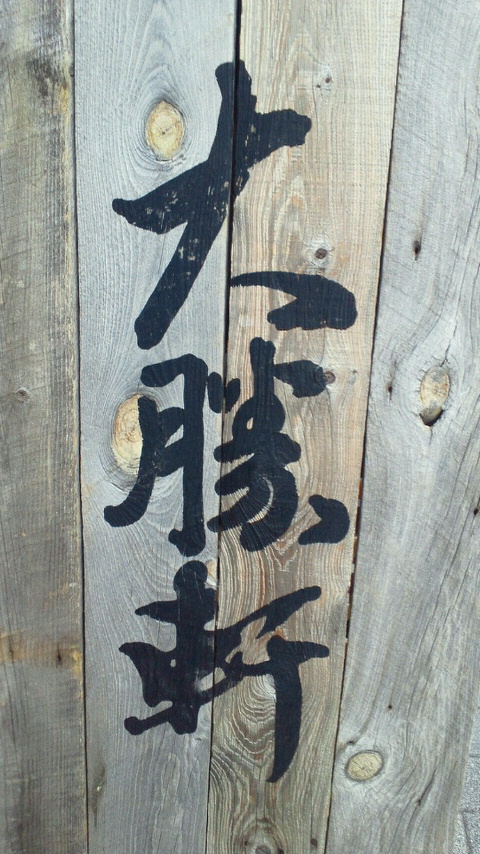 大勝軒